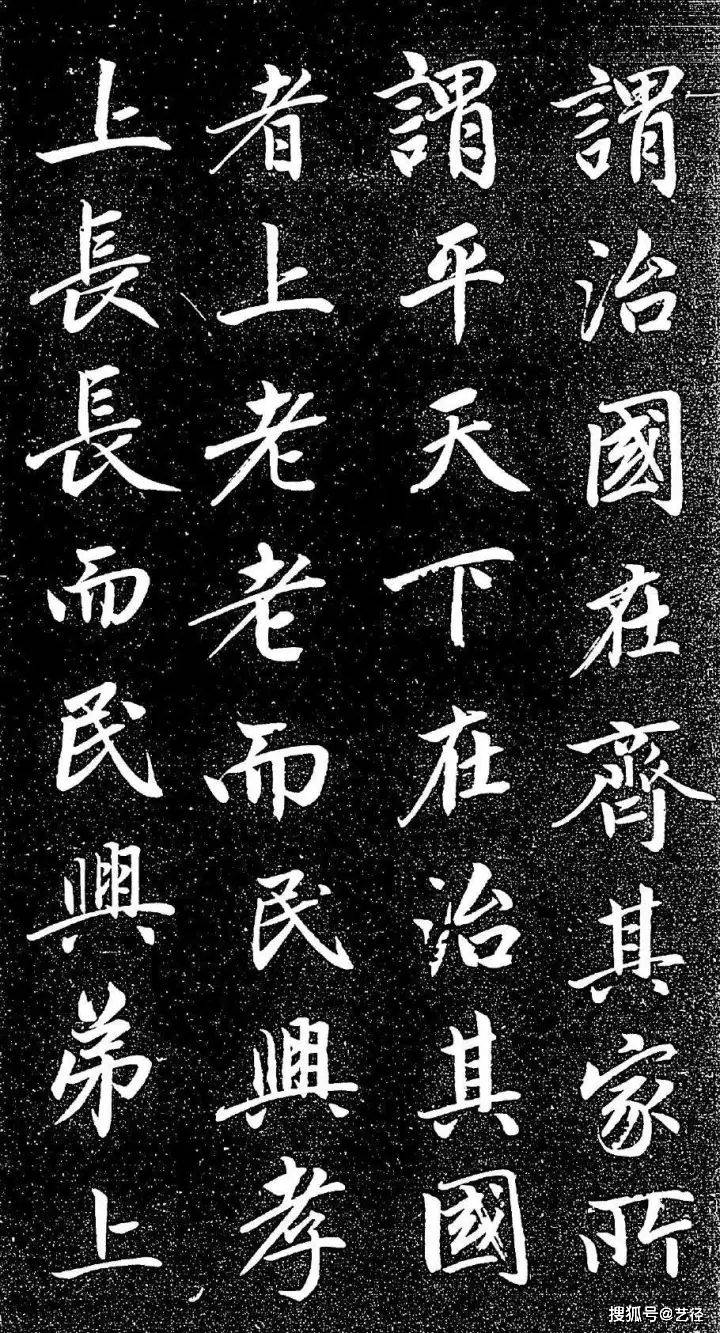 謂治國在齊其家所
謂平天下在治其國
者上老老而民興孝
上長長而民興弟上
搜狐号@艺径